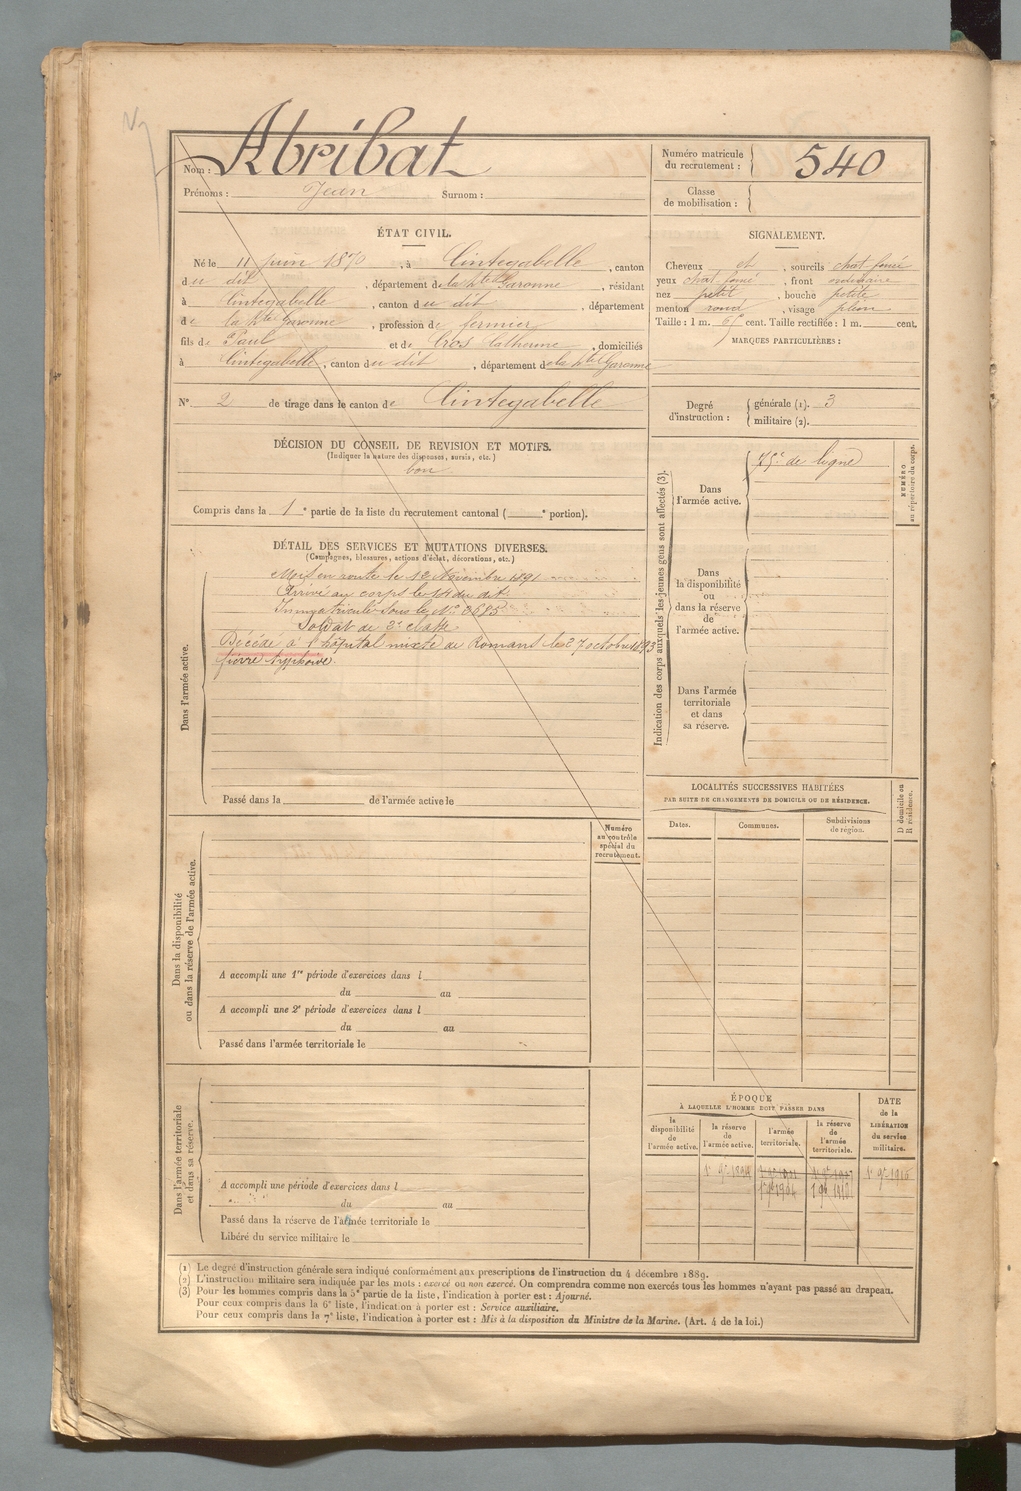 Nom : Abribat
Prénoms : Jean Surnom :
Numéro matricule
du recrutement : 540
Classe
de mobilisation :
ÉTAT CIVIL.
Né le 11 juin 1870, à Cintegabelle, canton
du dit, département de la Hte Garonne, résidant
à Cintegabelle, canton du dit, département
de la Hte Garonne, profession de fermier
fils de Paul et de Cros Catherine, domiciliés
à Cintegabelle, canton du dit, département de la Hte Garonne
N° 2 de tirage dans le canton de Cintegabelle
SIGNALEMENT.
Cheveux et, sourcils chat. foncé
yeux chat. foncé, front ordinaire
nez petit, bouche petite
menton rond, visage plein
Taille : 1 m. 65 cent. Taille rectifiée : 1 m. cent.
MARQUES PARTICULIÈRES :
Degré
d'instruction :
générale (1). 3
militaire (2).
DÉCISION DU CONSEIL DE REVISION ET MOTIFS.
(Indiquer la nature des dispenses, sursis, etc.)
bon
Compris dans la 1e partie de la liste du recrutement cantonal ( e portion).
DÉTAIL DES SERVICES ET MUTATIONS DIVERSES.
(Campagnes, blessures, actions d'éclat, décorations, etc.)
Dans l'armée active.
Mis en route le 12 Novembre 1891
Arrivé au corps le 14 du dit
Immatriculé sous le N° 3685
Soldat de 2e classe
Décédé à l'hôpital mixte de Romans le 27 octobre 1893
fièvre typhoïde.
Passé dans la de l'armée active le
Indication des corps auxquels les jeunes gens sont affectés (3).
Dans
l'armée active.
75e de ligne
NUMÉRO
au répertoire du corps.
Dans
la disponibilité
ou
dans la réserve
de
l'armée active.
Dans l'armée
territoriale
et dans
sa réserve.
LOCALITÉS SUCCESSIVES HABITÉES
PAR SUITE DE CHANGEMENTS DE DOMICILE OU DE RÉSIDENCE.
Dates.
Communes.
Subdivisions
de région.
D domicile ou
R résidence.
Numéro
au contrôle
spécial du
recrutement.
Dans la disponibilité
ou dans la réserve de l'armée active.
A accompli une 1re période d'exercices dans l
du au
A accompli une 2e période d'exercices dans l
du au
Passé dans l'armée territoriale le
Dans l'armée territoriale
et dans sa réserve.
A accompli une période d'exercices dans l
du au
Passé dans la réserve de l'armée territoriale le
Libéré du service militaire le
ÉPOQUE
À LAQUELLE L'HOMME DOIT PASSER DANS
la
disponibilité
de
l'armée active.
la réserve
de
l'armée active.
l'armée
territoriale.
la réserve
de
l'armée
territoriale.
DATE
de la
LIBÉRATION
du service
militaire.
(1) Le degré d'instruction générale sera indiqué conformément aux prescriptions de l'instruction du 4 décembre 1889.
(2) L'instruction militaire sera indiquée par les mots : exercé ou non exercé. On comprendra comme non exercés tous les hommes n'ayant pas passé au drapeau.
(3) Pour les hommes compris dans la 5e partie de la liste, l'indication à porter est : Ajourné.
Pour ceux compris dans la 6e liste, l'indication à porter est : Service auxiliaire.
Pour ceux compris dans la 7e liste, l'indication à porter est : Mis à la disposition du Ministre de la Marine. (Art. 4 de la loi.)